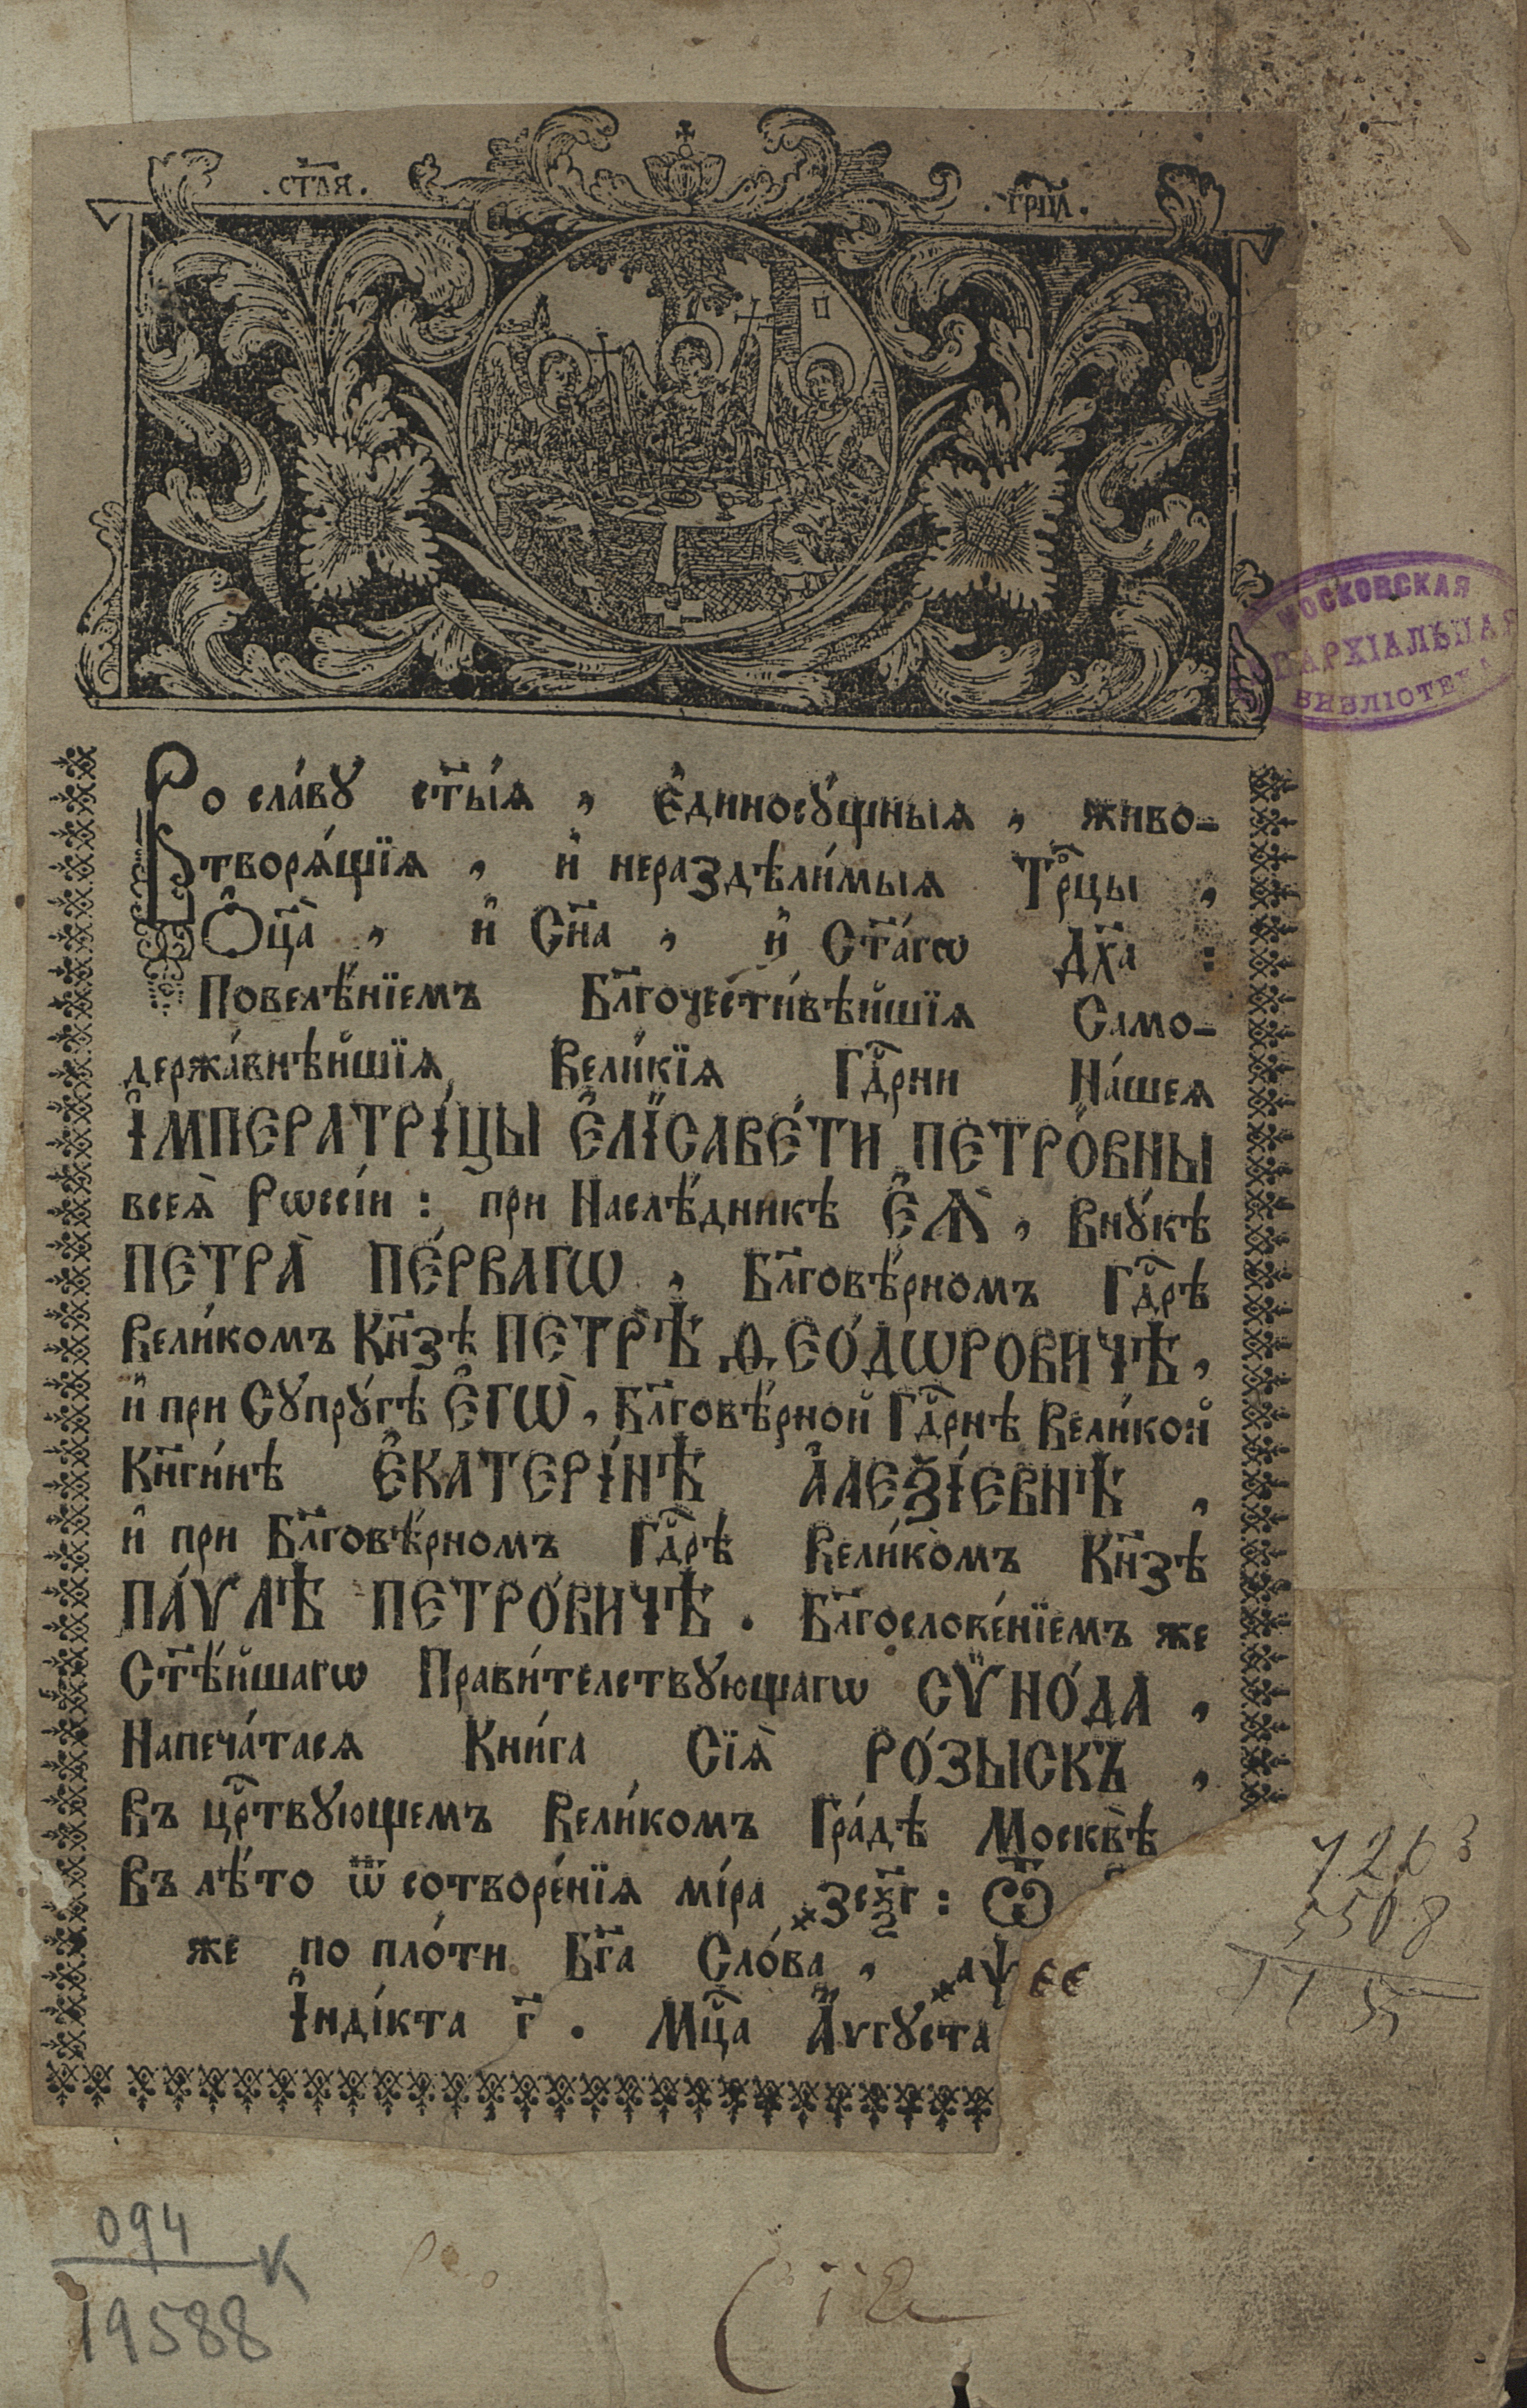 .ст҃ая.
.трⷪ҇ца.
МОСКОВСКАЯ
ЕПАРХІАЛЬНАЯ
БИБЛІОТЕКА
Во сла́вꙋ ст҃ы́ѧ , є҆диносꙋ́щныѧ , живо-
творѧ́щїѧ , и҆ нераздѣли́мыѧ Трⷪ҇цы ,
Ѻ҆ц҃а̀ , и҆ Сн҃а , и҆ Ст҃а́гѡ Дх҃а :
Повелѣ́нїемъ Бл҃гочести́вѣйшїѧ Само-
держа́внѣйшїѧ, Вели́кїѧ Гдⷭ҇рни На́шеѧ
І҆МПЕРАТРІ́ЦЫ Є҆ЛІСАВЕ́ТИ ПЕТРО́ВНЫ
всеѧ̀ Рѡссі́и : при Наслѣ́дникѣ Є҆Ѧ̀ , Внꙋ́кѣ
ПЕТРА̀ ПЕ́РВАГѠ , Бл҃говѣ́рномъ Гдⷭ҇рѣ
Вели́комъ Кн҃зѣ ПЕТРѢ̀ Ѳ ЕО́ДѠРОВИЧѢ ,
и҆ при Сꙋпрꙋ́гѣ Є҆ГѠ̀ , Бл҃говѣ́рной Гдⷭ҇рнѣ Вели́кой
Кн҃ги́нѣ Є҆КАТЕРІ́НѢ А҆ЛЕѮІ́ЕВНѢ ,
и҆ при Бл҃говѣ́рномъ Гдⷭ҇рѣ Вели́комъ Кн҃зѣ
ПА́ѴЛѢ ПЕТРО́ВИЧѢ . Бл҃гослове́нїемъ же
Ст҃ѣ́йшагѡ Прави́телствꙋющагѡ СѴНО́ДА ,
Напеча́тасѧ Кни́га Сїѧ̀ РО́ЗЫСКЪ ,
Въ црⷭ҇твꙋющемъ Вели́комъ Гра́дѣ Москвѣ̀
Въ лѣ́то ѿ сотворе́нїѧ мі́ра ҂зсѯ҃г : Ѿ
же по пло́ти Бг҃а Сло́ва , ҂аѱ єє
І҆нді́кта г҃ . Мцⷭ҇а А҆ѵгꙋста
7263
5508
094
К
19588